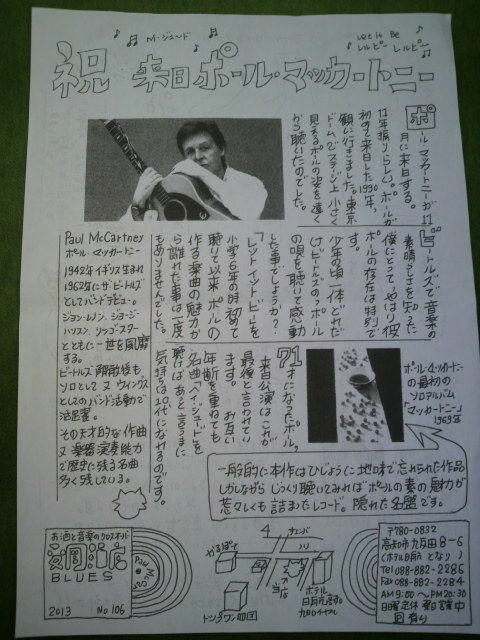 M-ジュード
Let It Be
レルビー レルビー
祝 来日 ポール・マッカートニー
ポール マッカートニーが 11
月に来日する。
11年振りらしい。ポールが
初めて来日した1990年、
観に行きました。東京
ドーム。ステージ上 小さく
見えるポールの姿を遠く
から聴いたのでした。
ビートルズで音楽の
素晴らしさを知った
僕にとって やはり彼
ポールの存在は特別で
少年の頃 一体 どれだ
けビートルズの ポール
の唄を聴いて感動
した事でしょうか?
「レット イット ビー」を
小学6年の時 初めて
聴いて以来 ポールの
作る楽曲の魅力か
ら離れた事は一度
もありませんでした。
71才になったポール。
来日公演は これが
最後と言われてい
ます。 お互い
年齢を重ねても
名曲「ヘイ、ジュード」を
聴けば あっと言うまに
気持ちは10代になれるのです。
Paul McCartney
ポール・マッカートニー
1942年イギリス生まれ
1962年にザ・ビートルズ
としてバンドデビュー。
ジョン・レノン、ジョージ・
ハリスン、リンゴ・スター
とともに 一世を風靡
する。
ビートルズ解散後も
ソロとして 又 ウィングス
としてのバンド活動で
活躍。
その天才的な作曲
又 楽器演奏能力
で歴史に残る名曲
多く残している。
ポール・マッカートニー
の最初の
ソロアルバム
「マッカートニー」
1969年
一般的に本作はひじょうに地味で忘れられた作品
しかしながら じっくり聴いてみれば ポールの素の魅力が
惹々しくも 詰まったレコード。隠れた名盤です。
お酒と音楽のクロスオーバー
BLUES
2013 No 106
4
かるぽーと
ホテル
日航旭ロイヤル
〒780-0832
高知市九反田8-6
(ホテル日航 となり)
Tel 088-882-2286
Fax 088-882-2284
AM9:00~PM20:30
日曜定休 祭日営業中